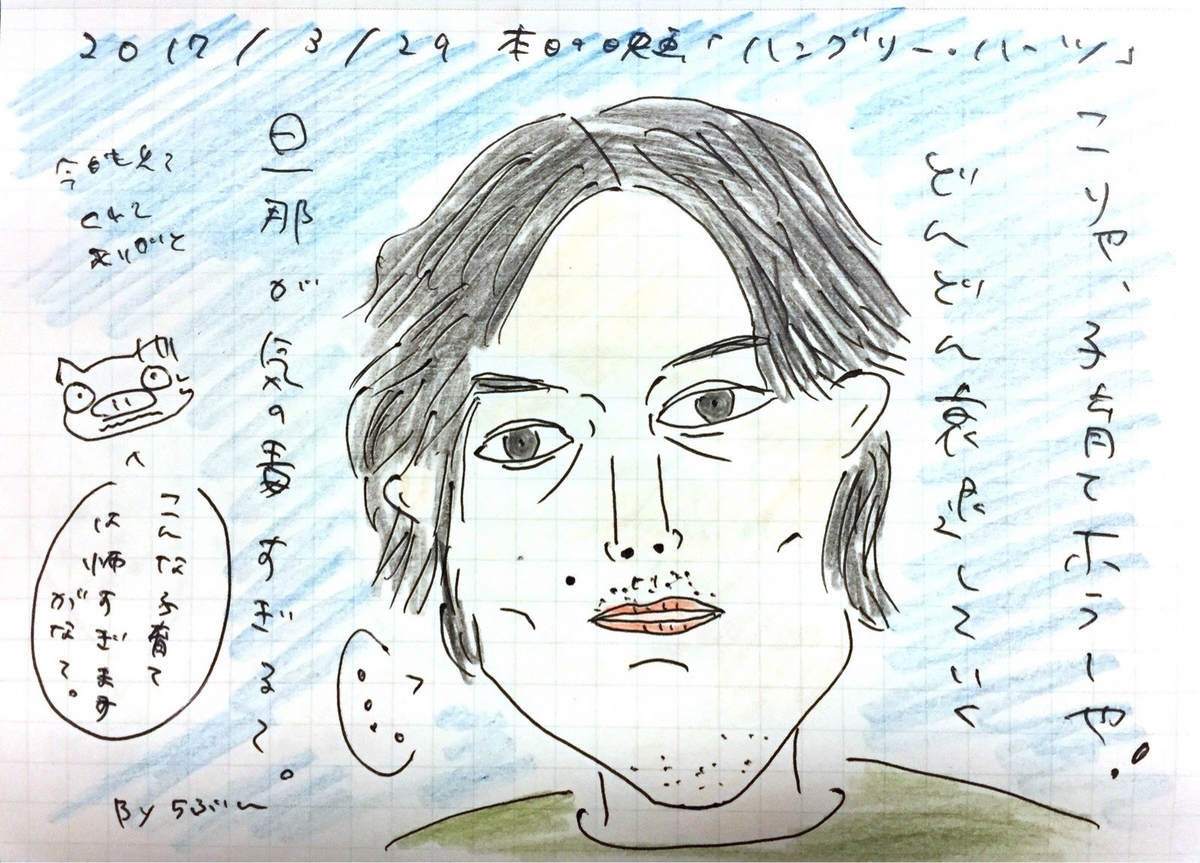 2017/3/29 本日の映画「ハングリー・ハーツ」
こりゃ、子育てホラーや。
どんどん衰退していく
旦那が気の毒すぎるて。
今日も見て
くれて
ありがと
こんな子育て
は怖すぎます
がなて。
By らぶひ